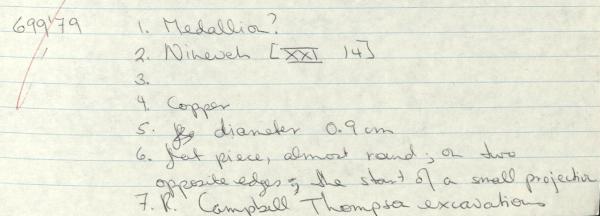 699'79 1. Medallion?
2. Nineveh [XXI 14]
3.
4. Copper
5. diameter 0.9 cm
6. flat piece, almost round; on two
opposite edges, the start of a small projection
7. R. Campbell Thompson excavations